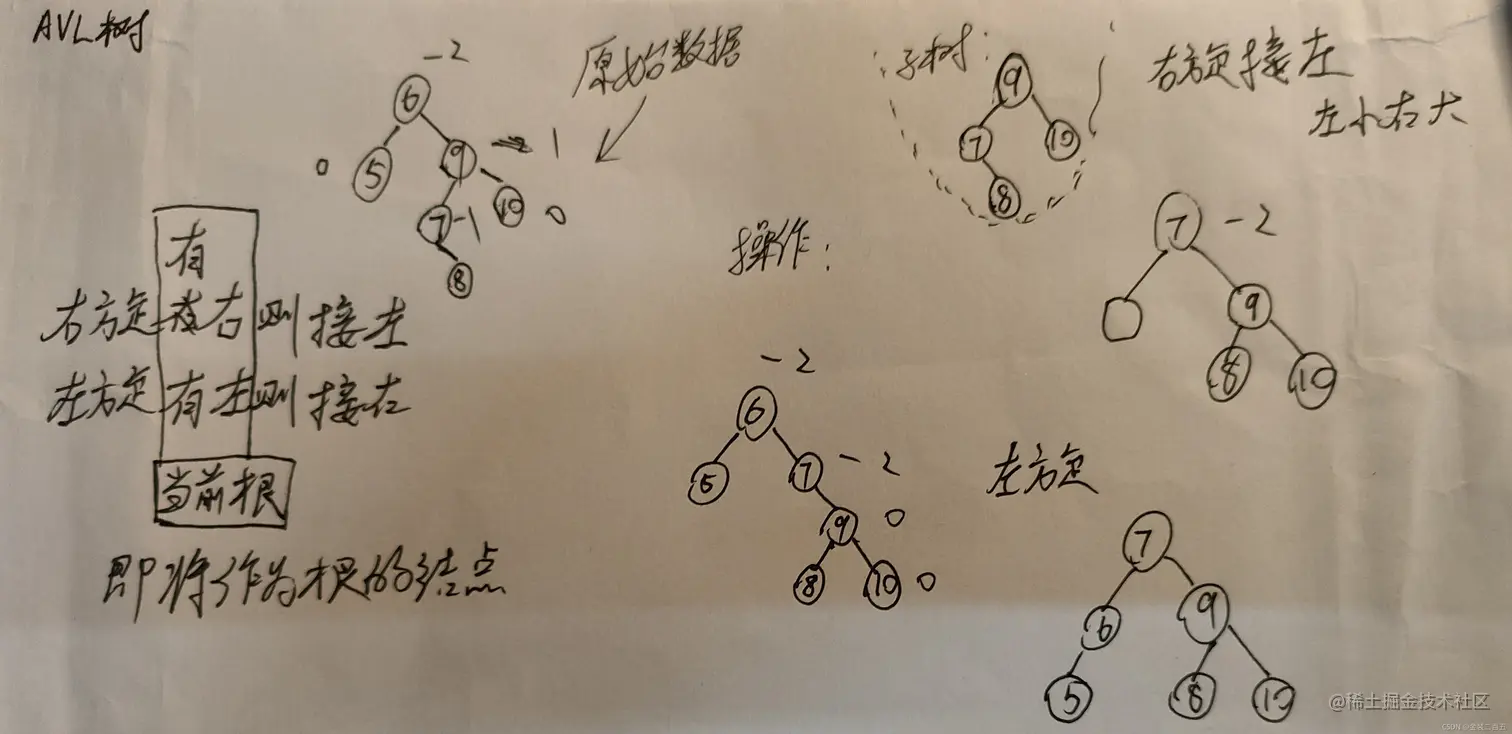 AVL树
-2
原始数据
6
5
9
1
0
7
-1
10
0
8
子树:
9
7
10
8
右方定接左
左小右大
有
右方定 右则接左
左方定有左则接右
当前根
即将作为根的结点
操作:
-2
6
5
7
-2
9
0
8
10
0
7
-2
9
8
10
左方定
7
6
9
5
8
10
@稀土掘金技术社区